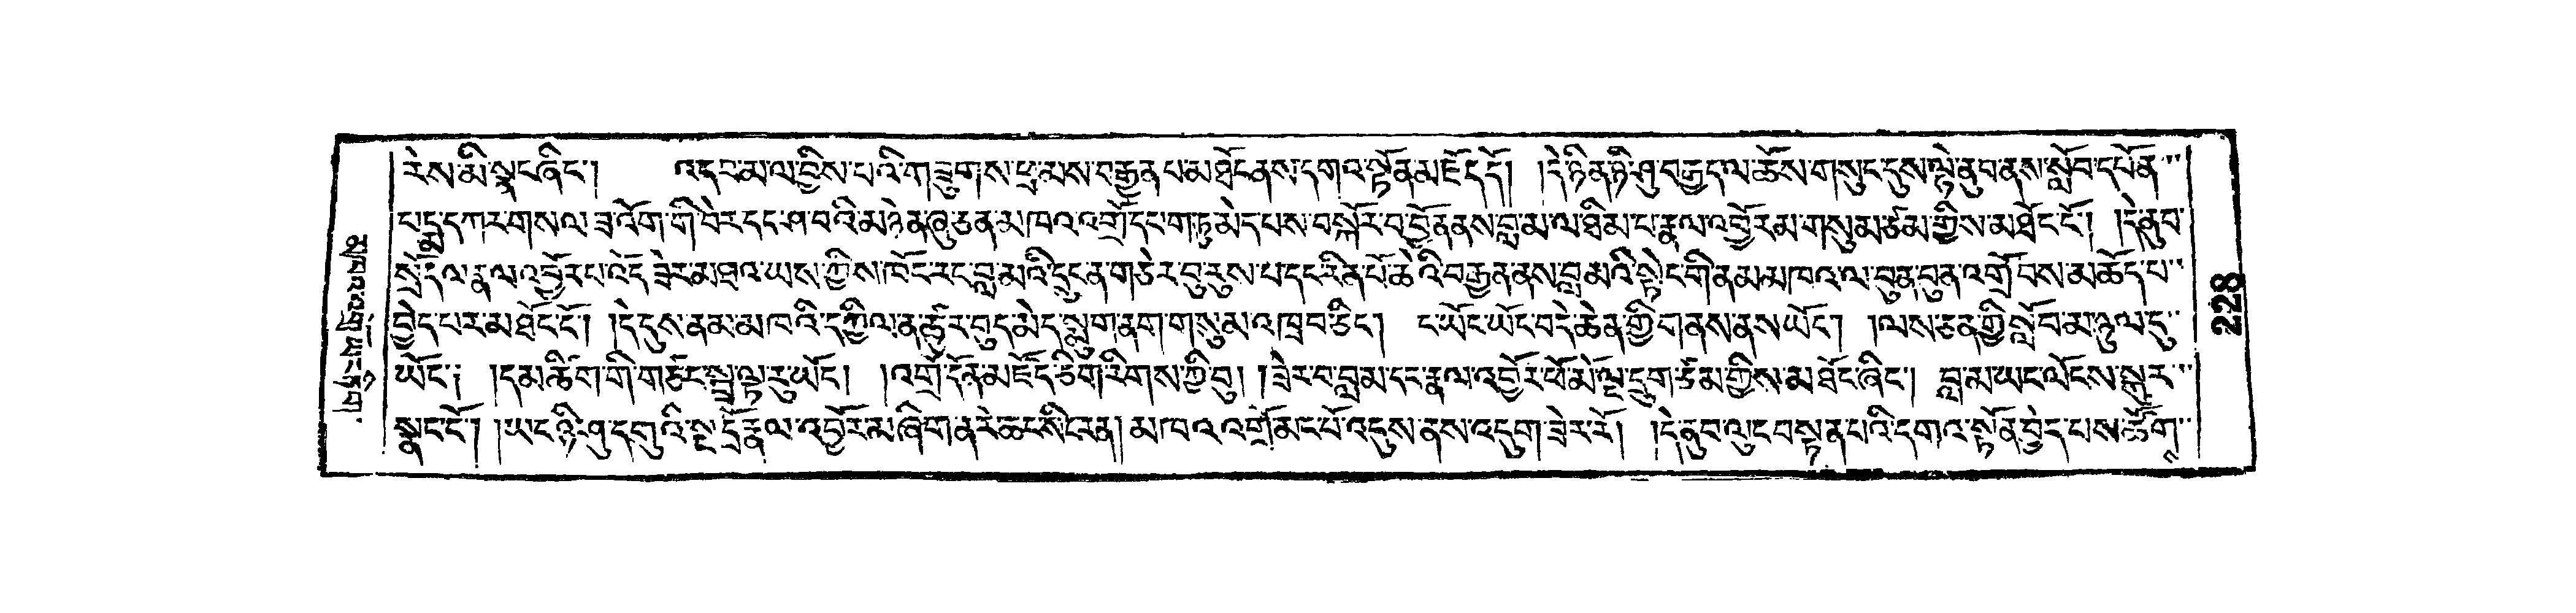 རེས་མི་སྣང་ཞིང་། འདབ་མ་ལ་བྱིས་པའི་གཟུགས་ཕྲ་མས་བརྒྱན་པ་མཐོང་ནས་དགའ་སྟོན་མཛོད་དོ། །དེ་ཉིན་ཉི་ཤུ་བརྒྱད་ལ་ཆོས་གསུང་དུས་ལྟེ་ནུབ་ནས་སློབ་དཔོན
པདྨ་དཀར་གསལ་ཟ་འོག་གི་བེར་དང་ཤ་བའི་མཉེན་ཞུ་ཅན་མཁའ་འགྲོ་དང་གཏུམ་མེད་པས་བསྐོར་བ་བྱོན་ནས་བླ་མ་ལ་ཐིམ་པ་རྣལ་འབྱོར་མ་གསུམ་ཙམ་གྱིས་མཐོང་ངོ་། །དེ་ནུབ
སྲོད་ལ་རྣལ་འབྱོར་པ་འོད་ཟེར་མཐའ་ཡས་ཀྱིས་ཁོང་རང་བླ་མའི་དྲུང་ན་གཅེར་བུ་རུས་པ་དང་རིན་པོ་ཆེའི་བརྒྱན་ནས་བླ་མའི་སྟེང་གི་ནམ་མཁའ་ལ་བུན་བུན་འགྲོ་བས་མཆོད་པ
བྱེད་པར་མཐོང་ངོ་། །དེ་དུས་ནམ་མཁའི་དཀྱིལ་ན་རྫུར་བུད་མེད་སླག་ནག་གསུམ་འཁྲབ་ཅིང་། ང་ཡོང་ཡོང་བདེ་ཆེན་གྱི་གནས་ནས་ཡོང་། །ལས་ཅན་གྱི་སློབ་མ་ཉུལ་དུ
ཡོང་། །དམ་ཚིག་གི་གཙང་སྦྲ་ལྟ་རུ་ཡོང་། །འགྲོ་དོན་མཛོད་ཅིག་རིགས་ཀྱི་བུ། །ཟེར་བ་བླ་མ་དང་རྣལ་འབྱོར་ཕོ་མོ་ལྔ་དྲུག་ཙམ་གྱིས་མཐོང་ཞིང་། བླ་མ་ཡང་ལོངས་སྐུར
སྣང་ངོ་། །ཡང་ཉི་ཤུ་དགུའི་སྔ་དྲོ་རྣལ་འབྱོར་མ་ཞིག་ན་རེ་ཆང་སེང་རན། མཁའ་འགྲོ་མང་པོ་འདུས་ནས་འདུག་ཟེར་རོ། །དེ་ནུབ་ལུང་བསྟན་པའི་དགའ་སྟོན་བྱེད་པས་ཚོགས